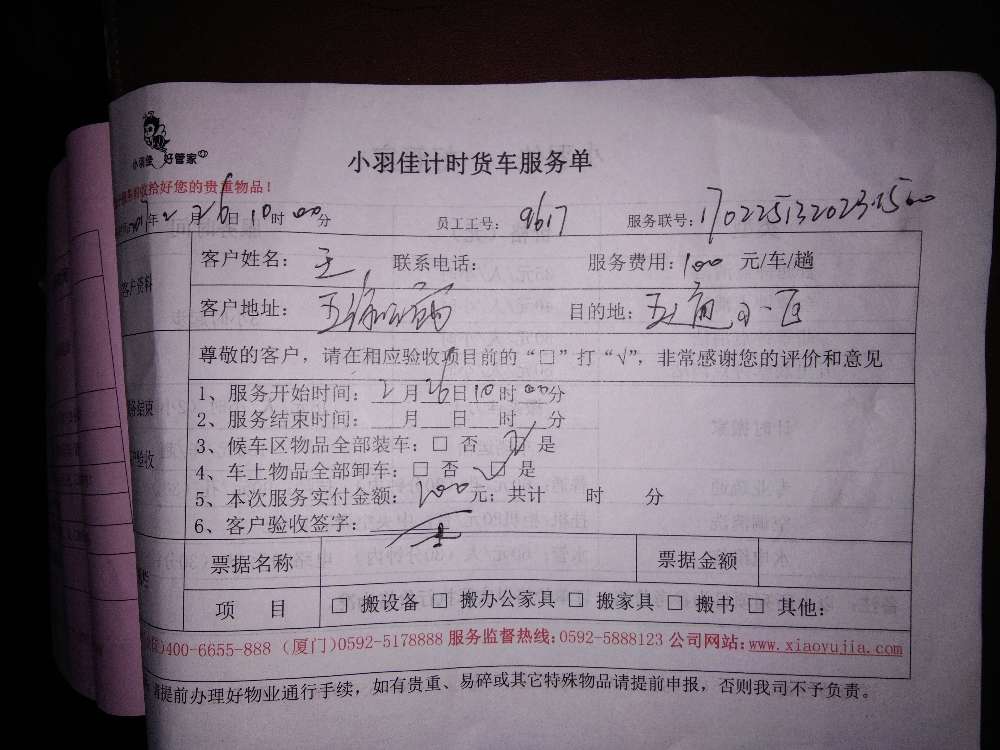 小羽佳 好管家
小羽佳计时货车服务单
收拾好您的贵重物品！
年2月26日10时00分 员工工号：9617 服务联号：
客户资料
客户姓名：王 联系电话： 服务费用：100元/车/趟
客户地址： 目的地：五通小区
尊敬的客户，请在相应验收项目前的“□”打“√”，非常感谢您的评价和意见
1、服务开始时间：2月26日10时00分
2、服务结束时间：__月__日__时__分
3、候车区物品全部装车：□ 否 ☑ 是
4、车上物品全部卸车：□ 否 ☑ 是
5、本次服务实付金额：100元；共计 时 分
6、客户验收签字：
验收
票据名称 票据金额
项 目 □ 搬设备 □ 搬办公家具 □ 搬家具 □ 搬书 □ 其他：
400-6655-888（厦门）0592-5178888 服务监督热线：0592-5888123 公司网站：www.xiaoyujia.com
提前办理好物业通行手续，如有贵重、易碎或其它特殊物品请提前申报，否则我司不予负责。